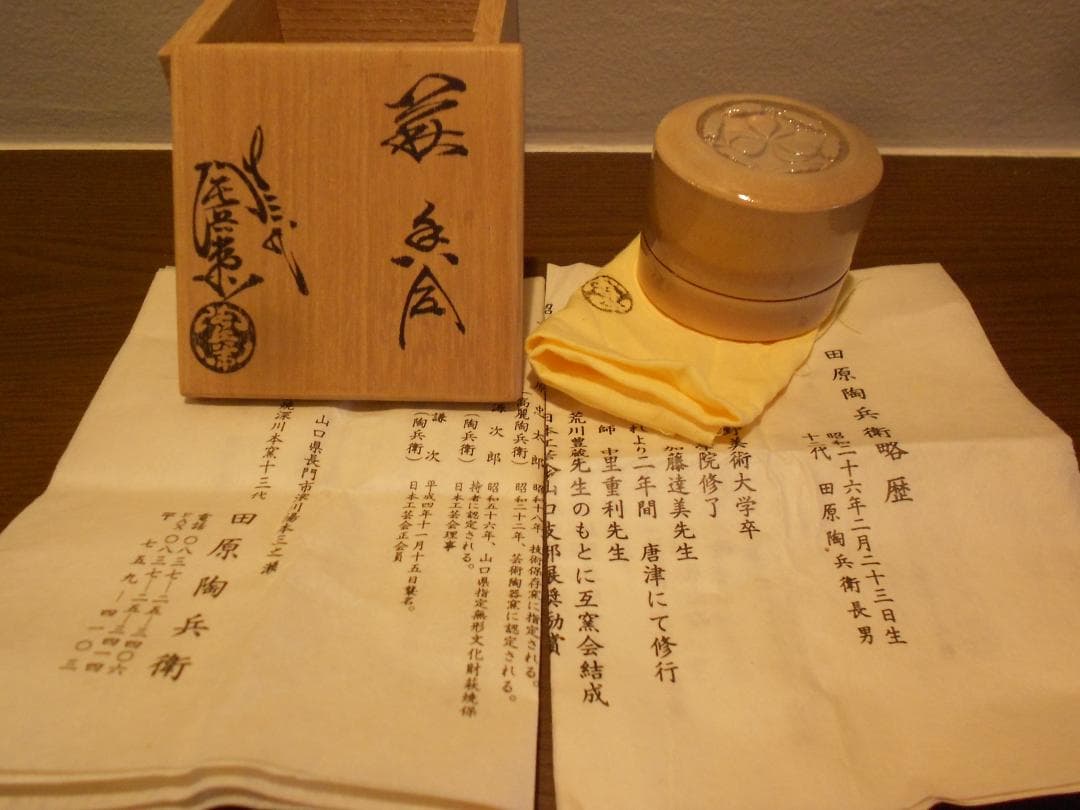 萩
香合
十三代
陶兵衛
田原陶兵衛略歴
昭和二十六年二月二十三日生
十二代 田原陶兵衛長男
野美術大学卒
院修了
加藤達美先生
れより二年間 唐津にて修行
師 重利先生
荒川豊蔵先生のもとに互窯会結成
日本工芸会山口支部展奨励賞
忠太郎 昭和十八年、技術保存窯に指定される。
(高麗陶兵衛) 昭和二十二年、芸術陶器窯に認定される。
謙次郎 昭和五十六年、山口県指定無形文化財萩焼保
(陶兵衛) 持者に認定される。
日本工芸会理事
謙次 平成四年十一月十五日襲名。
(陶兵衛) 日本工芸会正会員
山口県長門市深川湯本三之瀬
焼深川本窯十三代
田原陶兵衛
電話〇八三七―二五―三四〇六